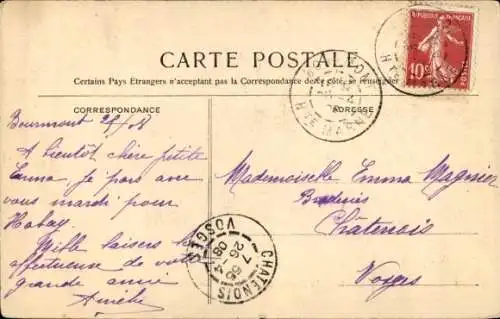 CARTE POSTALE
Certains Pays Etrangers n'acceptant pas la Correspondance de ce côté, se renseigner
CORRESPONDANCE
ADRESSE
REPUBLIQUE FRANÇAISE
10c
POSTES
HTE MARNE
Bourmont 25/4 08
A bientôt chère petite
Emma je pars avec
vous mardi pour
Mille baisers
affectueux de votre
grande amie
Amélie
Mademoiselle Emma Magnien
Broderies
Châtenois
Vosges
CHATENOIS
7 55
26 -4
08
VOSGES